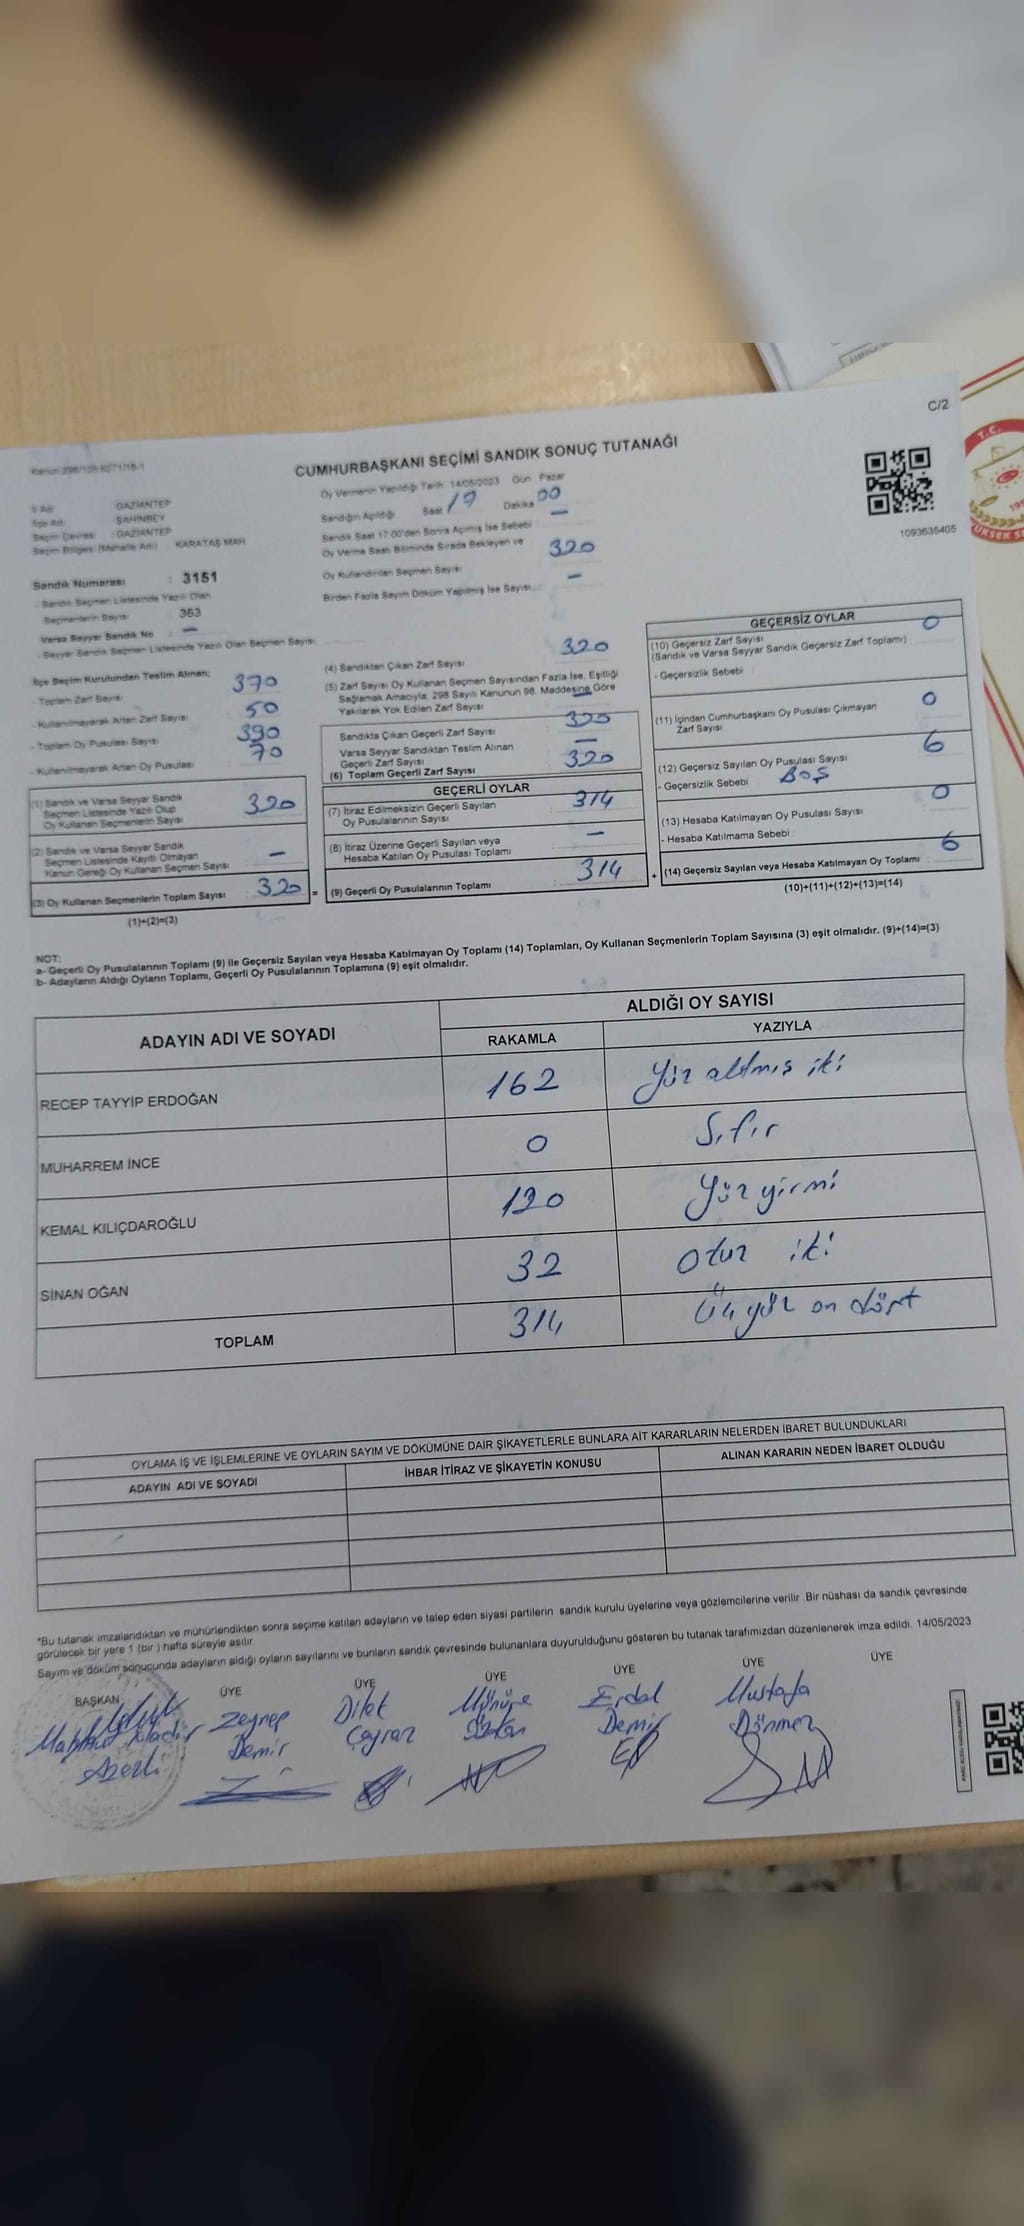 C/2
CUMHURBAŞKANI SEÇİMİ SANDIK SONUÇ TUTANAĞI
T.C.
1093635405
İl Adı : GAZİANTEP
İlçe Adı : ŞAHİNBEY
Seçim Çevresi : GAZİANTEP
Seçim Bölgesi (Mahalle Adı) : KARATAŞ MAH.
Sandık Numarası : 3151
- Sandık Seçmen Listesinde Yazılı Olan
Seçmenlerin Sayısı : 363
Varsa Seyyar Sandık No : —
- Seyyar Sandık Seçmen Listesinde Yazılı Olan Seçmen Sayısı :
Oy Vermenin Yapıldığı Tarih : 14/05/2023 Gün : Pazar
Sandığın Açıldığı Saat 17 Dakika 00
Sandık Saat 17:00'den Sonra Açılmış İse Sebebi : —
Oy Verme Saati Bitiminde Sırada Bekleyen ve
Oy Kullandırılan Seçmen Sayısı 320
Birden Fazla Sayım Döküm Yapılmış İse Sayısı : —
İlçe Seçim Kurulundan Teslim Alınan;
- Toplam Zarf Sayısı : 370
- Kullanılmayarak Artan Zarf Sayısı : 50
- Toplam Oy Pusulası Sayısı : 390
- Kullanılmayarak Artan Oy Pusulası : 70
(1) Sandık ve Varsa Seyyar Sandık
Seçmen Listesinde Yazılı Olup
Oy Kullanan Seçmenlerin Sayısı : 320
(2) Sandık ve Varsa Seyyar Sandık
Seçmen Listesinde Kayıtlı Olmayan
Kanun Gereği Oy Kullanan Seçmen Sayısı : —
(3) Oy Kullanan Seçmenlerin Toplam Sayısı : 320 =
(1)+(2)=(3)
(4) Sandıktan Çıkan Zarf Sayısı : 320
(5) Zarf Sayısı Oy Kullanan Seçmen Sayısından Fazla İse, Eşitliği
Sağlamak Amacıyla, 298 Sayılı Kanunun 98. Maddesine Göre
Yakılarak Yok Edilen Zarf Sayısı : —
Sandıkta Çıkan Geçerli Zarf Sayısı : 320
Varsa Seyyar Sandıktan Teslim Alınan
Geçerli Zarf Sayısı : —
(6) Toplam Geçerli Zarf Sayısı : 320
GEÇERLİ OYLAR
(7) İtiraz Edilmeksizin Geçerli Sayılan
Oy Pusulalarının Sayısı : 314
(8) İtiraz Üzerine Geçerli Sayılan veya
Hesaba Katılan Oy Pusulası Toplamı : —
(9) Geçerli Oy Pusulalarının Toplamı : 314 +
GEÇERSİZ OYLAR
(10) Geçersiz Zarf Sayısı : 0
(Sandık ve Varsa Seyyar Sandık Geçersiz Zarf Toplamı)
- Geçersizlik Sebebi :
(11) İçinden Cumhurbaşkanı Oy Pusulası Çıkmayan
Zarf Sayısı : 0
(12) Geçersiz Sayılan Oy Pusulası Sayısı : 6
- Geçersizlik Sebebi : BOŞ
(13) Hesaba Katılmayan Oy Pusulası Sayısı : 0
- Hesaba Katılmama Sebebi :
(14) Geçersiz Sayılan veya Hesaba Katılmayan Oy Toplamı : 6
(10)+(11)+(12)+(13)=(14)
NOT:
a- Geçerli Oy Pusulalarının Toplamı (9) ile Geçersiz Sayılan veya Hesaba Katılmayan Oy Toplamı (14) Toplamları, Oy Kullanan Seçmenlerin Toplam Sayısına (3) eşit olmalıdır. (9)+(14)=(3)
b- Adayların Aldığı Oyların Toplamı, Geçerli Oy Pusulalarının Toplamına (9) eşit olmalıdır.
ADAYIN ADI VE SOYADI ALDIĞI OY SAYISI
RAKAMLA YAZIYLA
RECEP TAYYİP ERDOĞAN 162 Yüz altmış iki
MUHARREM İNCE 0 Sıfır
KEMAL KILIÇDAROĞLU 120 Yüz yirmi
SİNAN OĞAN 32 Otuz iki
TOPLAM 314 Üçyüz on dört
OYLAMA İŞ VE İŞLEMLERİNE VE OYLARIN SAYIM VE DÖKÜMÜNE DAİR ŞİKAYETLERLE BUNLARA AİT KARARLARIN NELERDEN İBARET BULUNDUKLARI
ADAYIN ADI VE SOYADI İHBAR İTİRAZ VE ŞİKAYETİN KONUSU ALINAN KARARIN NEDEN İBARET OLDUĞU
*Bu tutanak imzalandıktan ve mühürlendikten sonra seçime katılan adayların ve talep eden siyasi partilerin sandık kurulu üyelerine veya gözlemcilerine verilir. Bir nüshası da sandık çevresinde
görülecek bir yere 1 (bir) hafta süreyle asılır.
Sayım ve döküm sonucunda adayların aldığı oyların sayılarını ve bunların sandık çevresinde bulunanlara duyurulduğunu gösteren bu tutanak tarafımızdan düzenlenerek imza edildi. 14/05/2023
BAŞKAN ÜYE ÜYE ÜYE ÜYE ÜYE ÜYE
Zeynep Dilek Münüre Erdal Mustafa
Demir Demir Dönmez